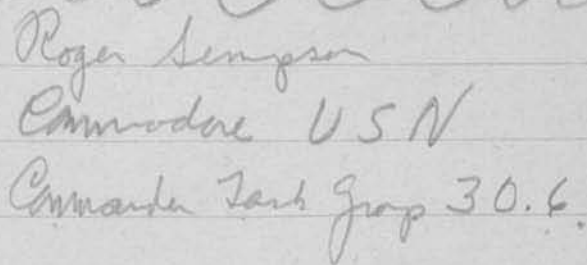 Roger Simpson
Commodore USN
Commander Task Group 30.6